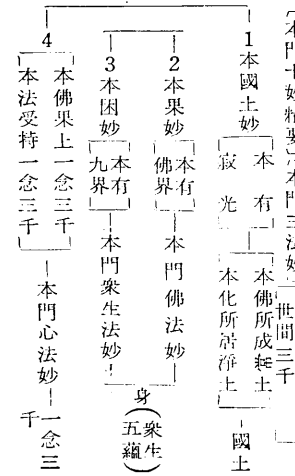 本門十妙精要 本門三法妙
世間三千
1 本國土妙
本有
寂光
本佛所成土
本化所居淨土
國土
2 本果妙
本有
佛界
本門佛法妙
3 本因妙
本有
九界
本門衆生法妙
身(衆生五蘊)
4
本佛果上一念三千
本法受持一念三千
本門心法妙
一念三千